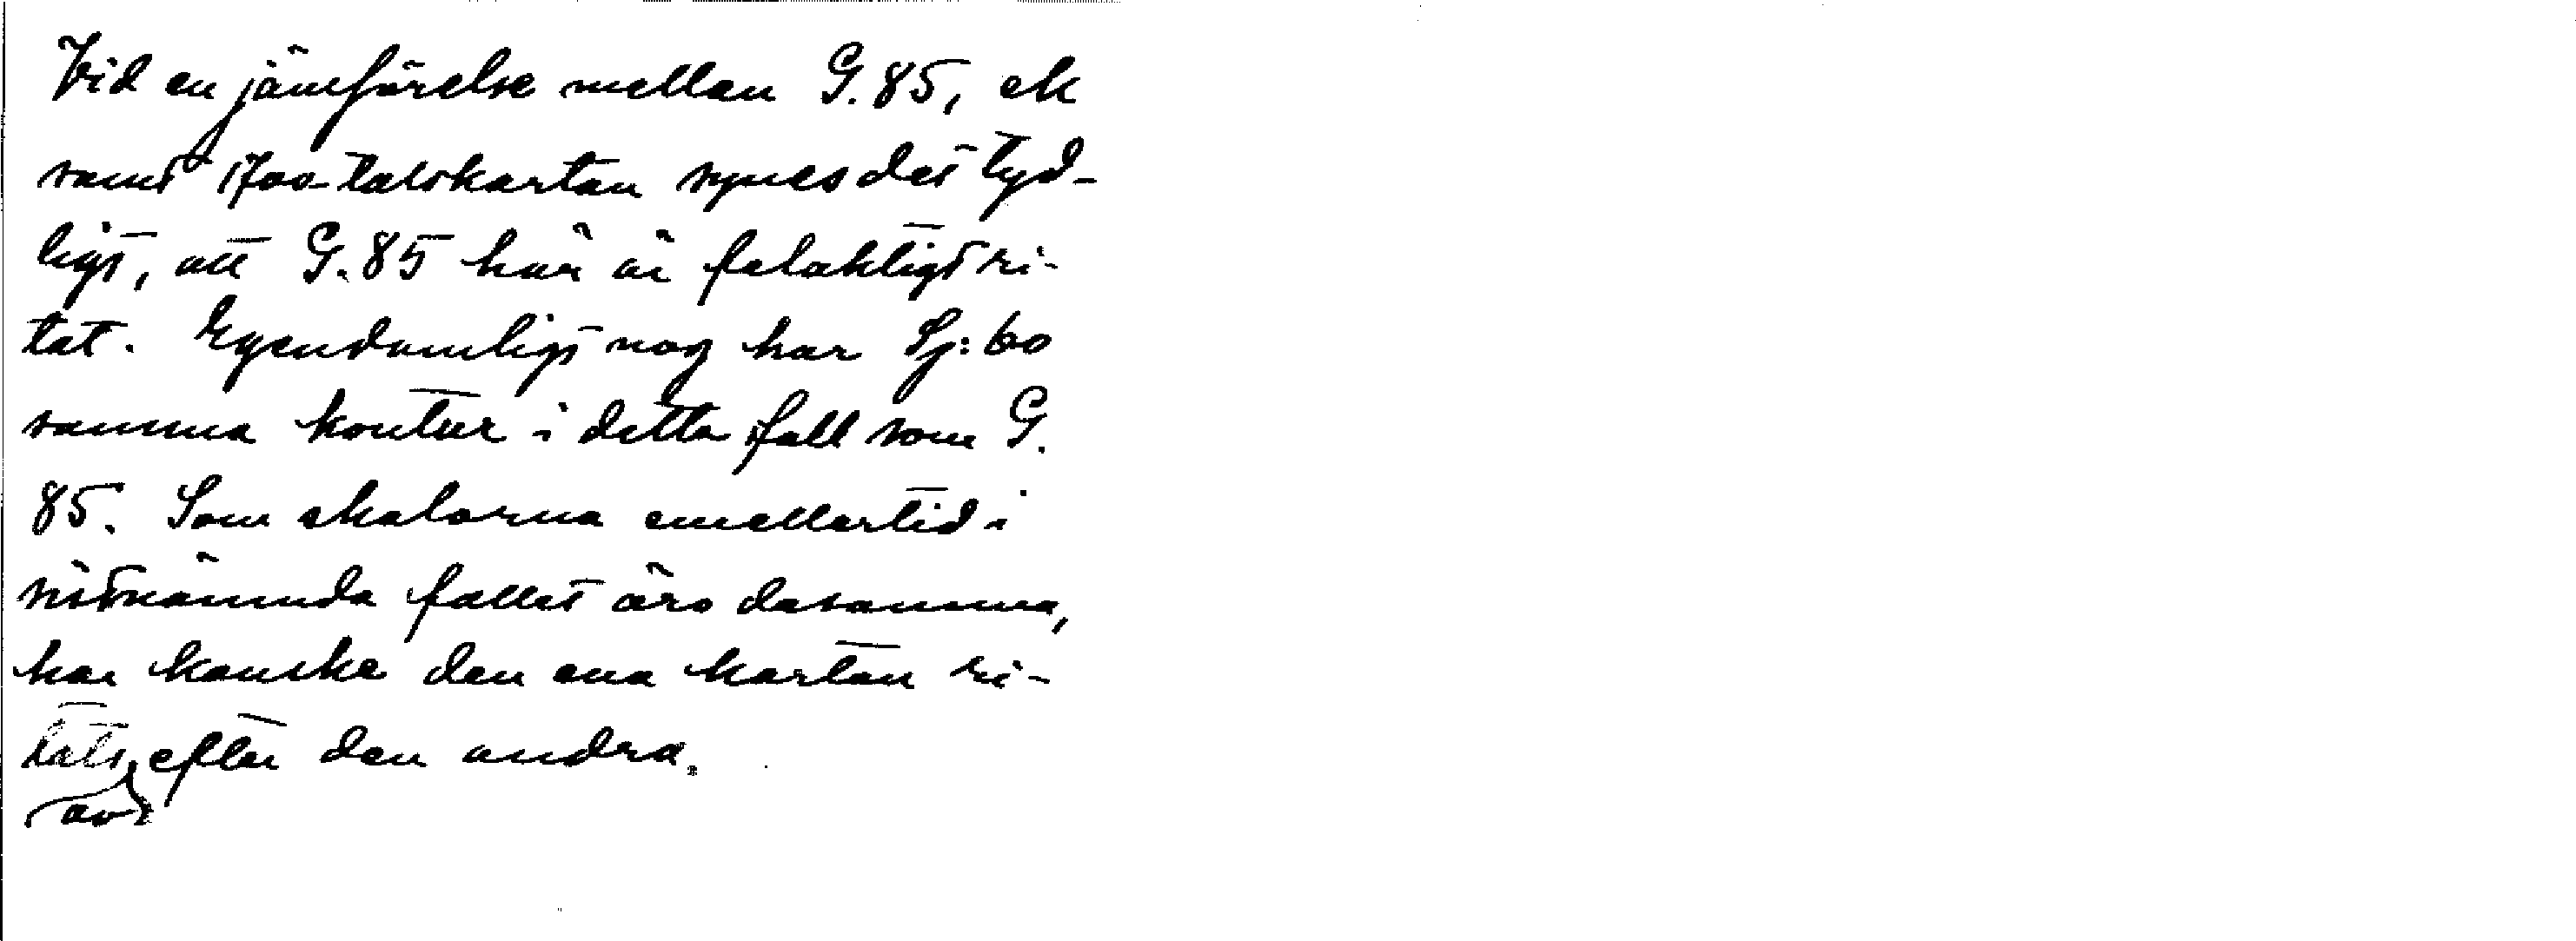 Vid en jämförelse mellan G. 85, ek
samt 1700-talskartan synes det tyd-
ligt, att G. 85 här är felaktigt ri-
tat. Egendomligt nog har Sj: 60
samma kontur i detta fall som G.
85. Som skalorna emellertid i
sistnämnda fallet äro desamma,
har kanske den ena kartan ri-
tats efter den andra.
av